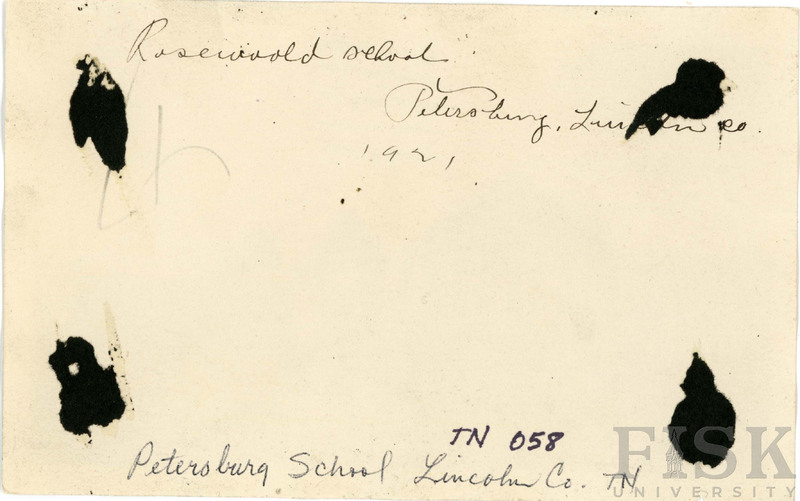 Rosewoold school
Petersburg, Lincoln co.
1921
TN 058
Petersburg School Lincoln Co. TN
FISK
UNIVERSITY